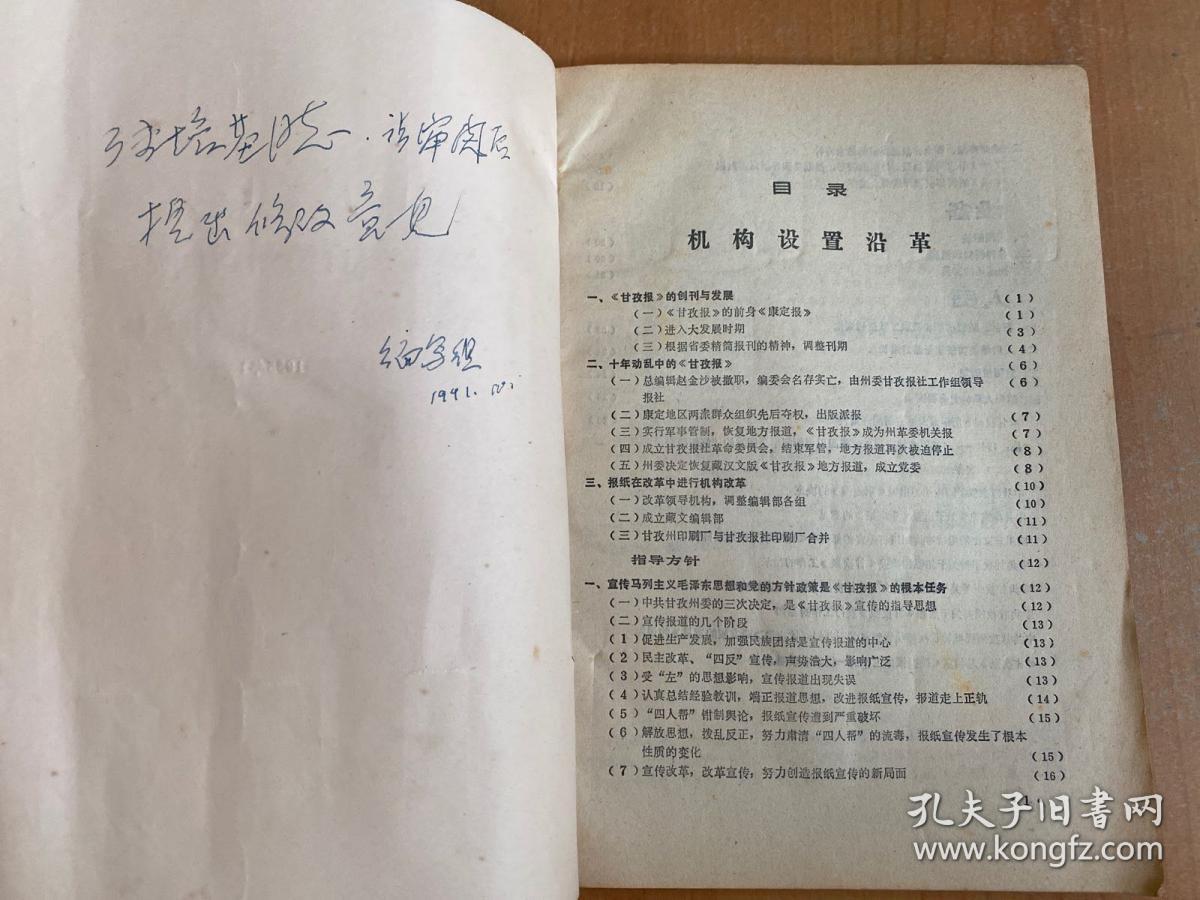 培基同志.请审阅后
提出修改意见
编写组
1991.10.
目录
机构设置沿革
一、《甘孜报》的创刊与发展 (1)
(一)《甘孜报》的前身《康定报》 (1)
(二)进入大发展时期 (3)
(三)根据省委精简报刊的精神，调整刊期 (4)
二、十年动乱中的《甘孜报》 (6)
(一)总编辑赵金沙被撤职，编委会名存实亡，由州委甘孜报社工作组领导 (6)
报社
(二)康定地区两派群众组织先后夺权，出版派报 (7)
(三)实行军事管制，恢复地方报道，《甘孜报》成为州革委机关报 (7)
(四)成立甘孜报社革命委员会，结束军管，地方报道再次被迫停止 (8)
(五)州委决定恢复藏汉文版《甘孜报》地方报道，成立党委 (8)
三、报纸在改革中进行机构改革 (10)
(一)改革领导机构，调整编辑部各组 (10)
(二)成立藏文编辑部 (11)
(三)甘孜州印刷厂与甘孜报社印刷厂合并 (11)
指导方针 (12)
一、宣传马列主义毛泽东思想和党的方针政策是《甘孜报》的根本任务 (12)
(一)中共甘孜州委的三次决定，是《甘孜报》宣传的指导思想 (12)
(二)宣传报道的几个阶段 (13)
(1)促进生产发展，加强民族团结是宣传报道的中心 (13)
(2)民主改革、“四反”宣传，声势浩大，影响广泛 (13)
(3)受“左”的思想影响，宣传报道出现失误 (13)
(4)认真总结经验教训，端正报道思想，改进报纸宣传，报道走上正轨 (14)
(5)“四人帮”钳制舆论，报纸宣传遭到严重破坏 (15)
(6)解放思想，拨乱反正，努力肃清“四人帮”的流毒，报纸宣传发生了根本
性质的变化 (15)
(7)宣传改革，改革宣传，努力创造报纸宣传的新局面 (16)
1
孔夫子旧书网
www.kongfz.com